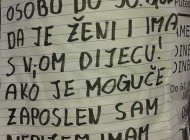 OSOBU DO 50. GOD
DA JE ŽENI I IMA
S V,OM DIJECU!
AKO JE MOGUČE
ZAPOSLEN SAM
NEPIJEM IMAM